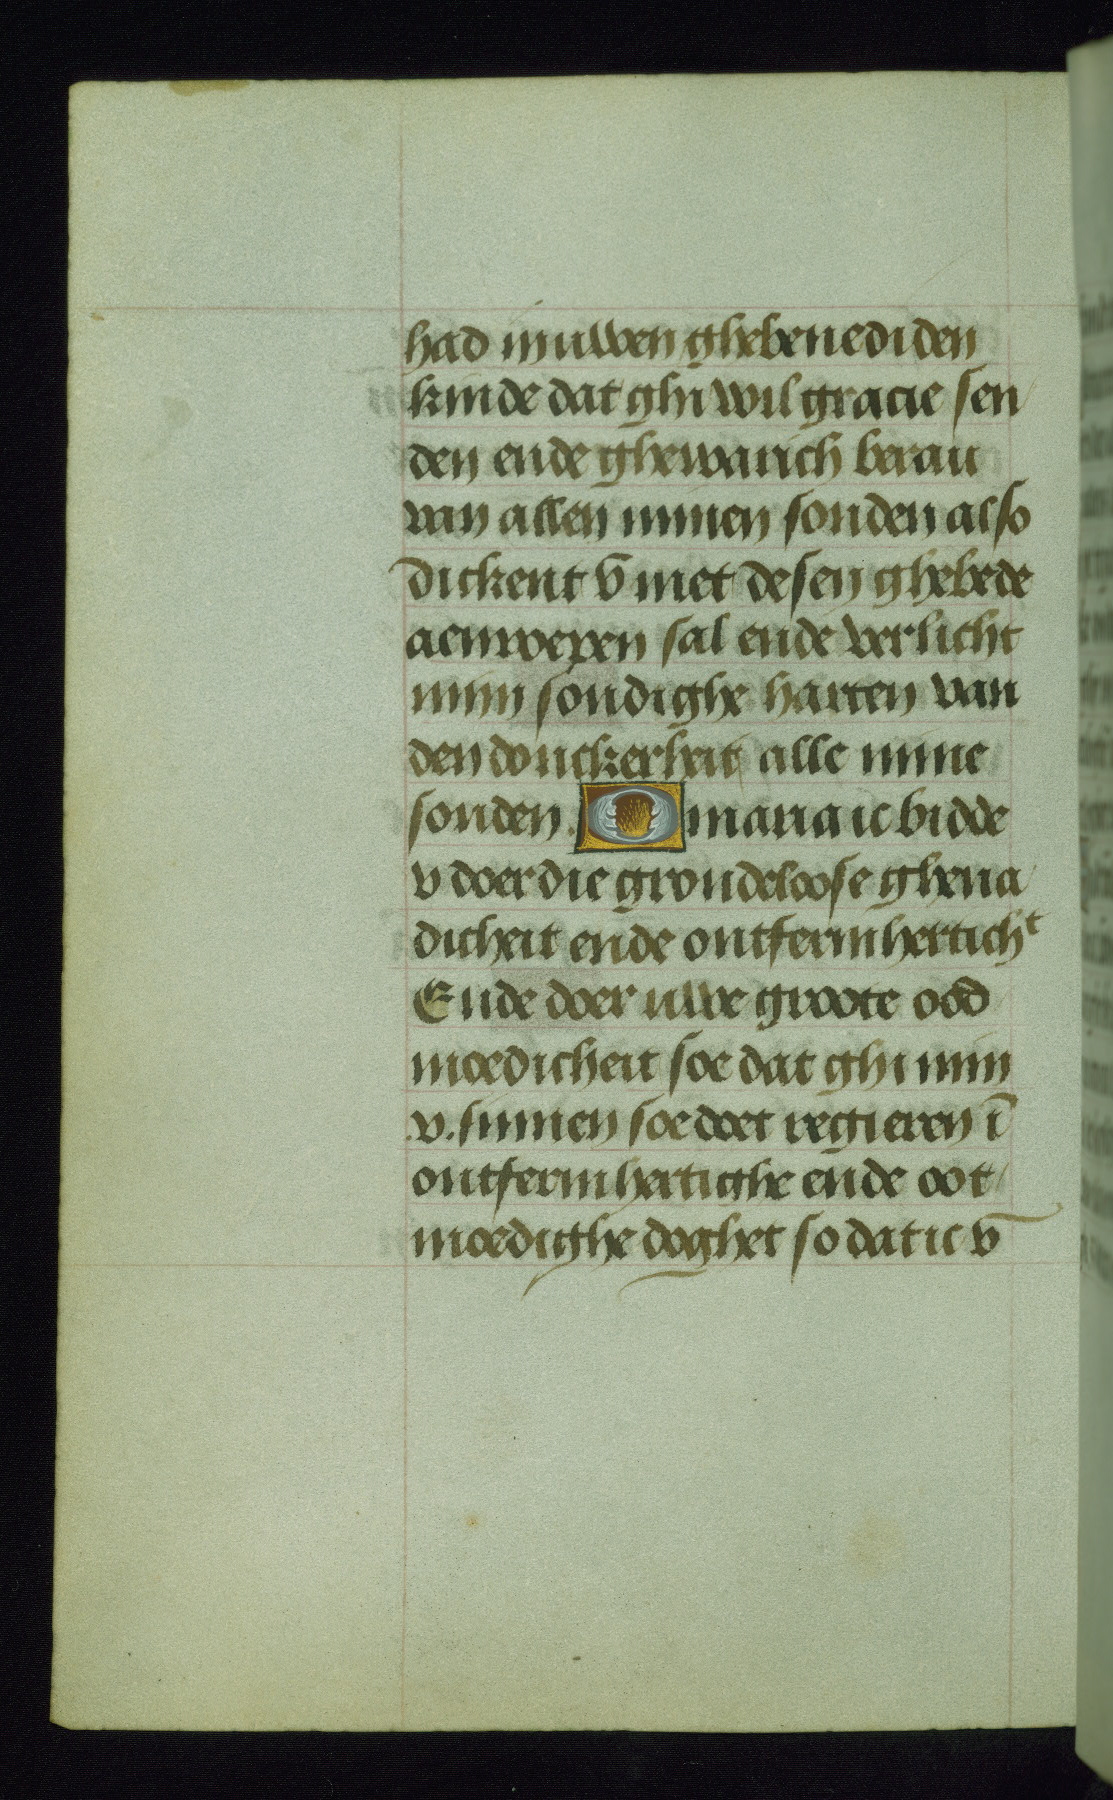 had in uwen ghebenediden
kinde dat ghi wil gracie sen
den ende ghewarich berau
van allen minen sonden also
dickent v̄ met desen ghebede
aenroepen sal ende verlicht
mijn sondighe harten van
den donckerheit alle mine
sonden. O maria ic bidde
v doer die grondeloose ghena
dicheit ende ontfermhertichᵗ
Ende doer uwe groote ood
moedicheit soe dat ghi mijn
.v. sinnen soe doet regieren ī
ontfermhertighe ende oot
moedighe doghet so dat ic v̄